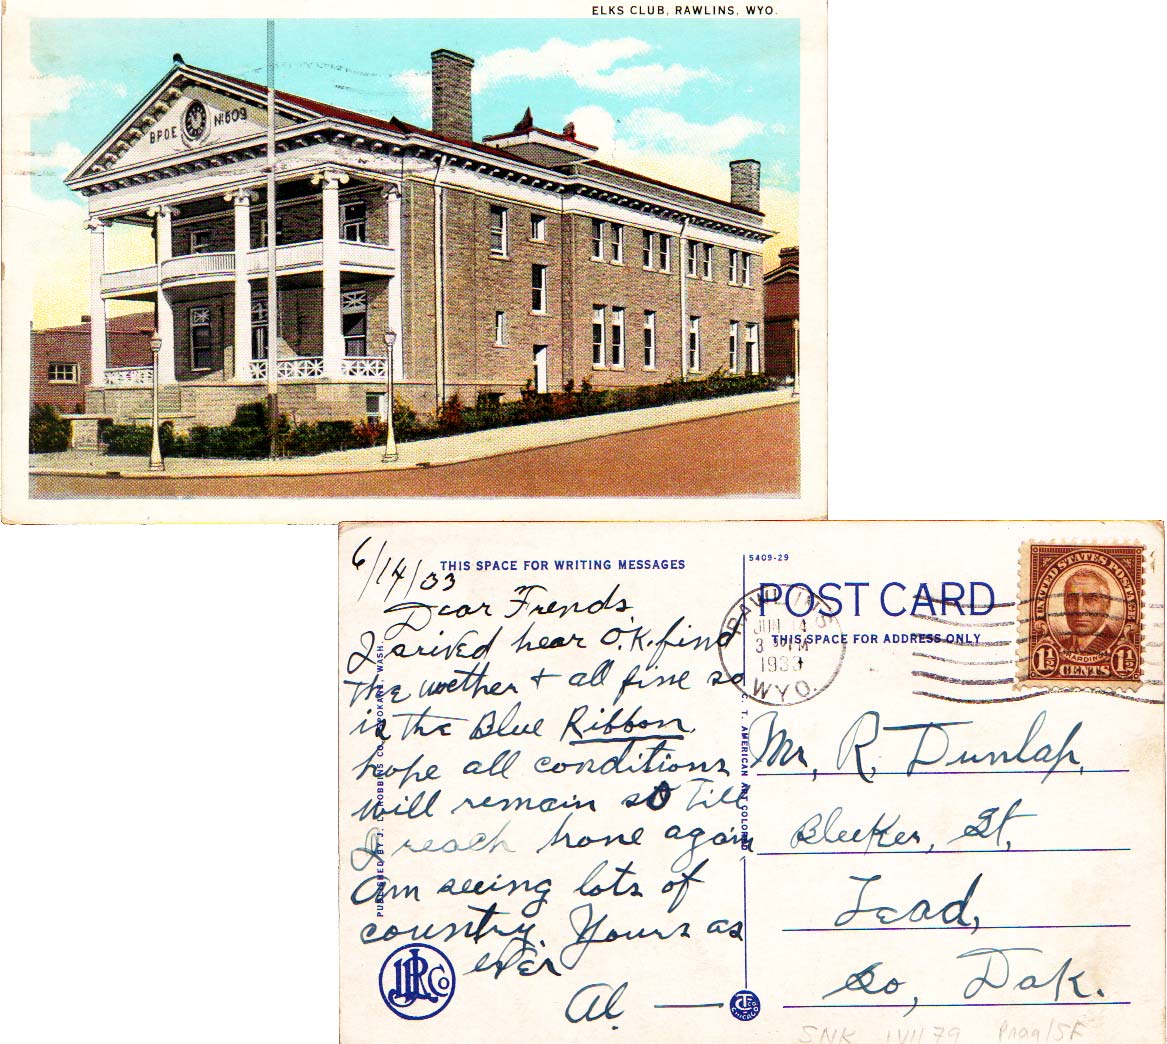 ELKS CLUB, RAWLINS, WYO.
BPOE
No 609
6/14/33
THIS SPACE FOR WRITING MESSAGES
Dear Frends
I arived hear O.K. find
the wether + all fine so
is the Blue Ribbon.
hope all conditions
will remain so Till
I reach hone again
am seeing lots of
country. Yours as
ever
Al.
PUBLISHED BY J. L. ROBBINS CO., SPOKANE, WASH.
JLR Co
5409-29
POST CARD
THIS SPACE FOR ADDRESS ONLY
RAWLINS
JUN 14
3 PM
1933
WYO.
UNITED STATES POSTAGE
HARDING
1½ 1½
CENTS
C. T. AMERICAN ART COLORED
Mr, R, Dunlap,
Bleeker, St,
Lead,
So, Dak.
CHICAGO
SNK